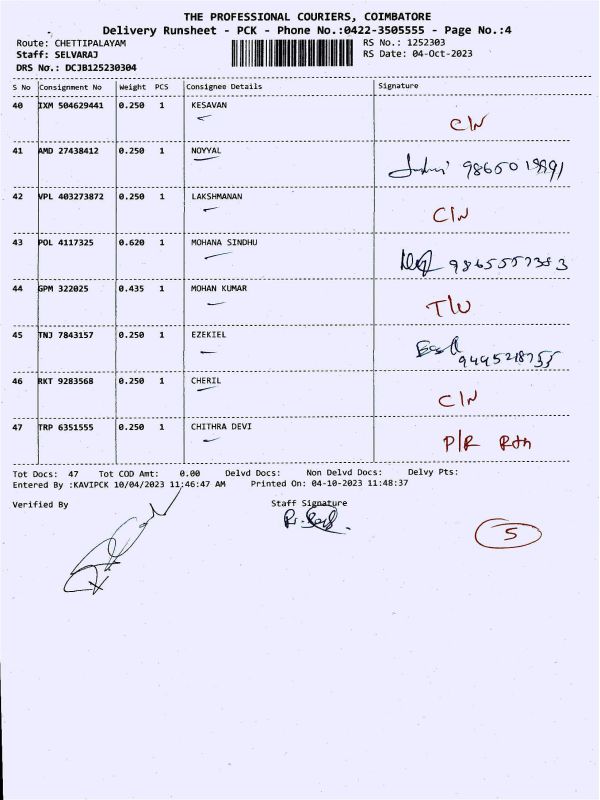 THE PROFESSIONAL COURIERS, COIMBATORE
Delivery Runsheet - PCK - Phone No.:0422-3505555 - Page No.:4
Route: CHETTIPALAYAM RS No.: 1252303
Staff: SELVARAJ RS Date: 04-Oct-2023
DRS No.: DCJB125230304
S No Consignment No Weight PCS Consignee Details Signature
40 IXM 504629441 0.250 1 KESAVAN C/N
41 AMD 27438412 0.250 1 NOYYAL
42 VPL 403273872 0.250 1 LAKSHMANAN C/N
43 POL 4117325 0.620 1 MOHANA SINDHU 9865557383
44 GPM 322025 0.435 1 MOHAN KUMAR
45 TNJ 7843157 0.250 1 EZEKIEL
46 RKT 9283568 0.250 1 CHERIL C/N
47 TRP 6351555 0.250 1 CHITHRA DEVI P/R
Tot Docs: 47 Tot COD Amt: 0.00 Delvd Docs: Non Delvd Docs: Delvy Pts:
Entered By :KAVIPCK 10/04/2023 11:46:47 AM Printed On: 04-10-2023 11:48:37
Verified By Staff Signature
5